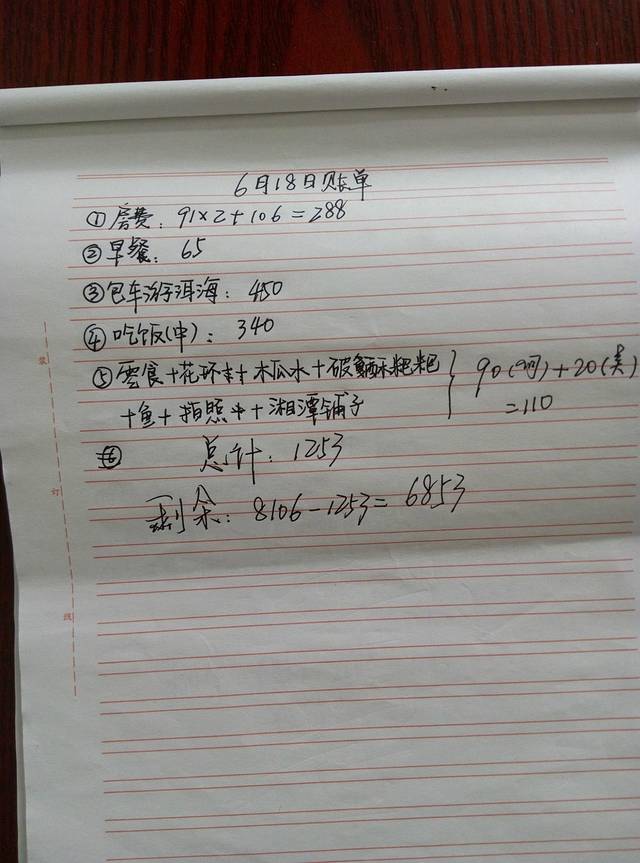 6月18日账单
①房费：91×2+106=288
②早餐：65
③包车游洱海：450
④吃饭(中)：340
⑤零食+花环+木瓜水+破酥粑粑
+鱼+拍照+湘潭铺子
90(呵)+20(美)
=110
⑥ 总计：1253
剩余：8106-1253=6853
装
订
线